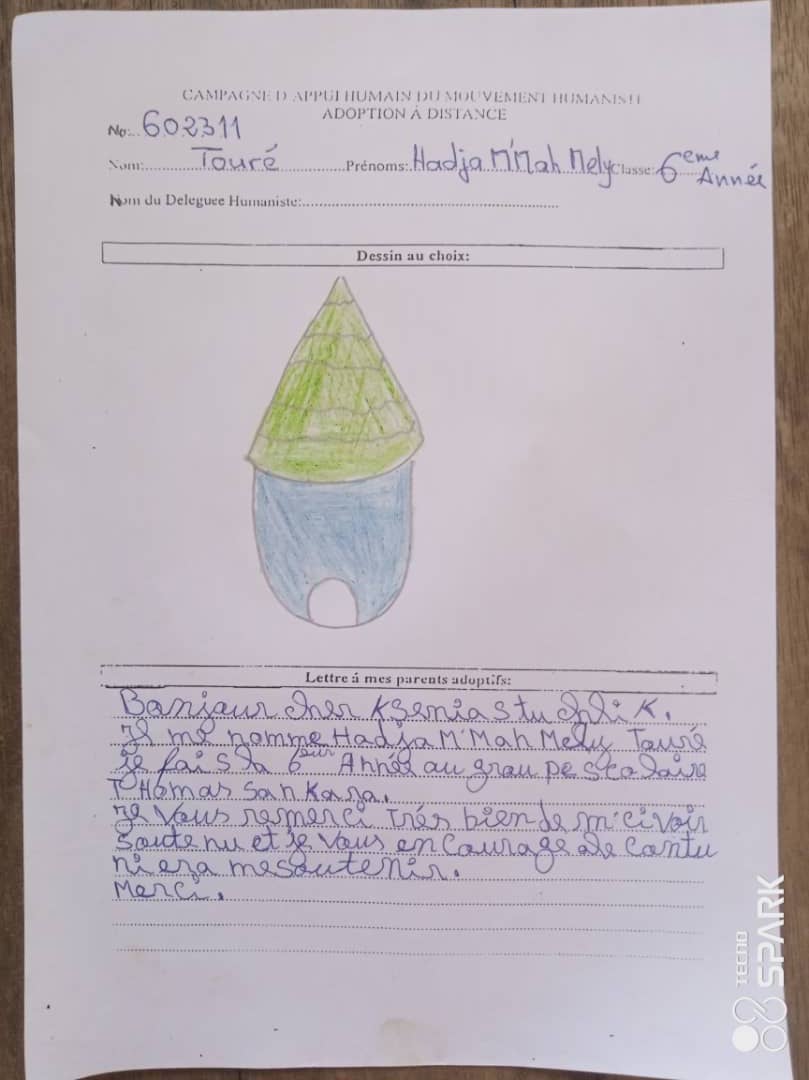 CAMPAGNE D'APPUI HUMAIN DU MOUVEMENT HUMANISTE
ADOPTION À DISTANCE
No:..602311
Nom:..........Touré..........Prénoms:.Hadja M'Mah Mely Classe: 6eme Année
Nom du Deleguee Humaniste:..........
Dessin au choix:
Lettre á mes parents adoptifs:
Bonjour cher Ksenia
Je me nomme Hadja M'Mah Mely Touré
je fais la 6eur Année au groupe scolaire
THomas Sankara.
Je vous remerci très bien de m'
soutenu et je vous encourage de contu
niera me soutenir.
Merci.
TECNO
SPARK